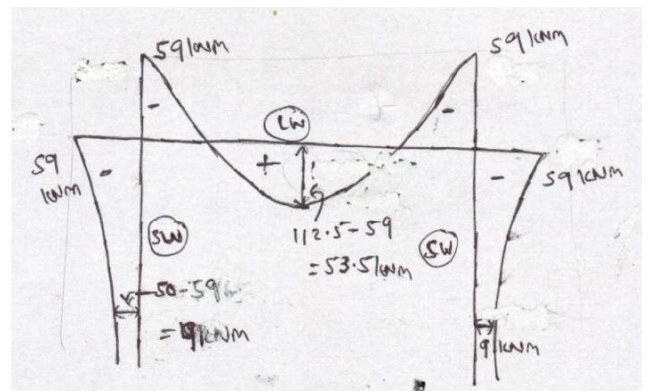 59 kNM
59 kNM
-
-
LW
59
kNM
-
+
-
59 kNM
SW
112.5-59
=53.5 kNM
SW
50-59
kNM
9 kNM